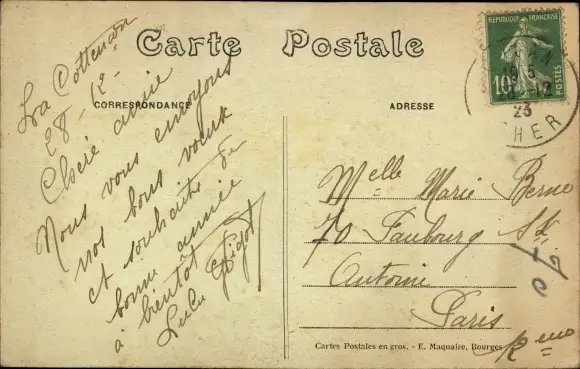 Carte Postale
CORRESPONDANCE
ADRESSE
REPUBLIQUE FRANÇAISE
10c
POSTES
28 12
23
CHER
La
28-12-
amie
Nous vous envoyons
nos bons vœux
et souhaits de
bonne année
à bientôt
Lulu
Melle Marie Berne
70 Faubourg St
Antoine
Paris
Cartes Postales en gros. - E. Maquaire, Bourges